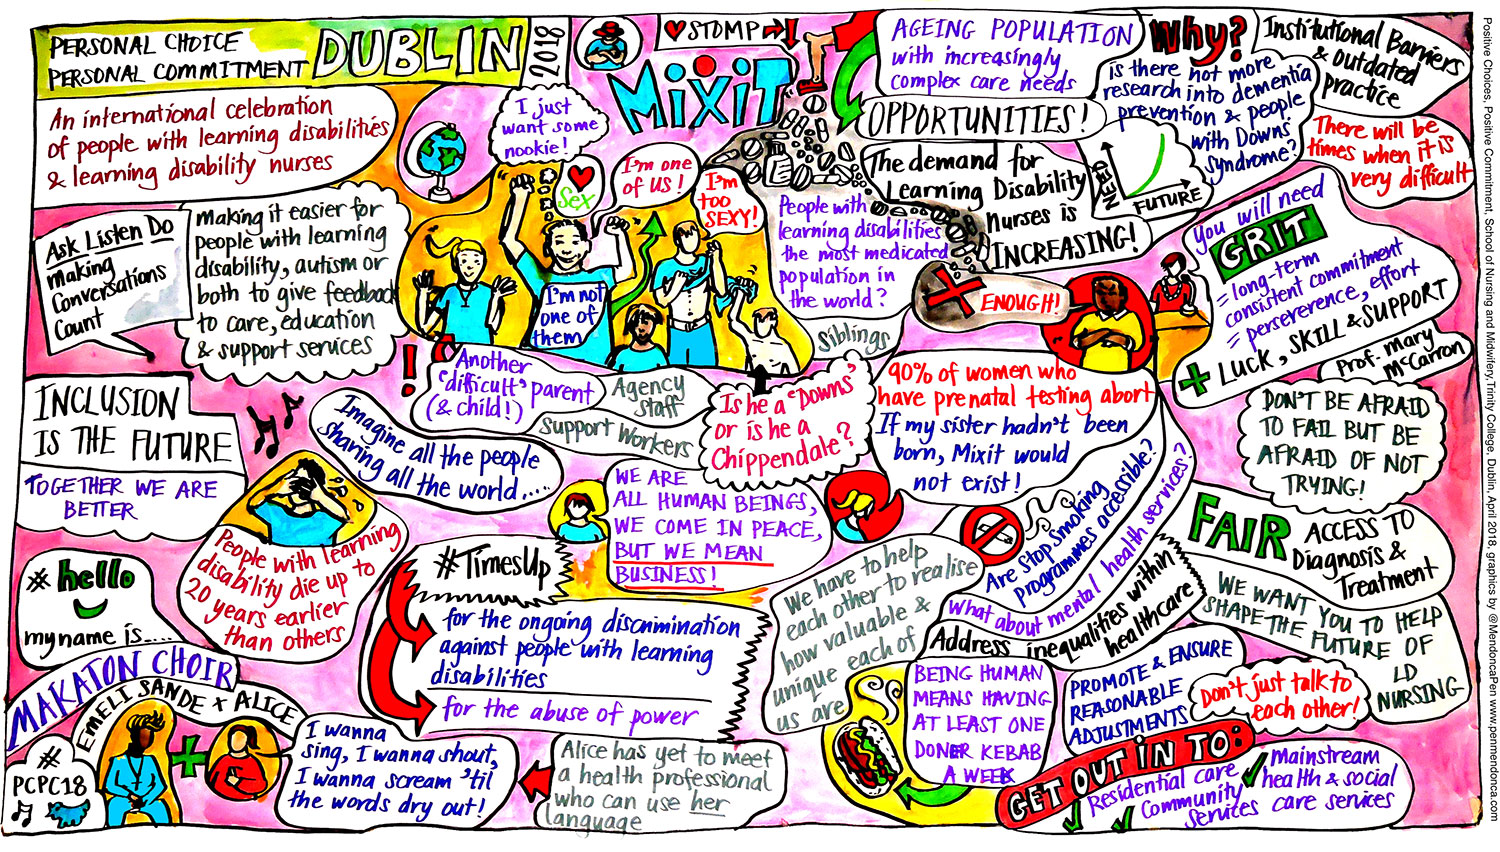 PERSONAL CHOICE
PERSONAL COMMITMENT
DUBLIN
2018
An international celebration
of people with learning disabilities
& learning disability nurses
Ask Listen Do
making
Conversations
Count
Making it easier for
people with learning
disability, autism or
both to give feedback
to care, education
& support services
INCLUSION
IS THE FUTURE
TOGETHER WE ARE
BETTER
# hello
my name is....
MAKATON CHOIR
EMELI SANDE + ALICE
#
PCPC18
I wanna
sing, I wanna shout,
I wanna scream 'til
the words dry out!
Alice has yet to meet
a health professional
who can use her
language
People with learning
disability die up to
20 years earlier
than others
Imagine all the people
sharing all the world....
STOMP
Mixit
I just
want some
nookie!
Sex
I'm one
of us!
I'm
too
SEXY!
I'm not
one of
them
Another
'difficult' parent
(& child!)
Agency
Staff
Support Workers
Siblings
Is he a 'Downs'
or is he a
Chippendale?
WE ARE
ALL HUMAN BEINGS,
WE COME IN PEACE,
BUT WE MEAN
BUSINESS!
#TimesUp
for the ongoing discrimination
against people with learning
disabilities
for the abuse of power
People with
learning disabilities
the most medicated
population in
the world?
ENOUGH!
AGEING POPULATION
with increasingly
complex care needs
OPPORTUNITIES!
The demand for
Learning Disability
Nurses is
INCREASING!
NEED
FUTURE
Why?
is there not more
research into dementia
prevention & people
with Downs
Syndrome?
Institutional Barriers
& outdated
practice
There will be
times when it is
very difficult
You will need
GRIT
= long-term
consistent commitment
= perseverence, effort
+ LUCK, SKILL & SUPPORT
Prof. Mary
McCarron
DON'T BE AFRAID
TO FAIL BUT BE
AFRAID OF NOT
TRYING!
90% of women who
have prenatal testing abort
If my sister hadn't been
born, Mixit would
not exist!
Are Stop Smoking
programmes accessible?
What about mental health services?
Address inequalities within
healthcare
We have to help
each other to realise
how valuable &
unique each of
us are
BEING HUMAN
MEANS HAVING
AT LEAST ONE
DONER KEBAB
A WEEK
FAIR ACCESS TO
Diagnosis &
Treatment
WE WANT YOU TO HELP
SHAPE THE FUTURE OF
LD
NURSING
PROMOTE & ENSURE
REASONABLE
ADJUSTMENTS
Don't just talk to
each other!
GET OUT IN TO:
Residential care
Community
Services
Mainstream
health & social
care services
Positive Choices, Positive Commitment, School of Nursing and Midwifery, Trinity College, Dublin, April 2018, graphics by @MendoncaPen www.penmendonca.com